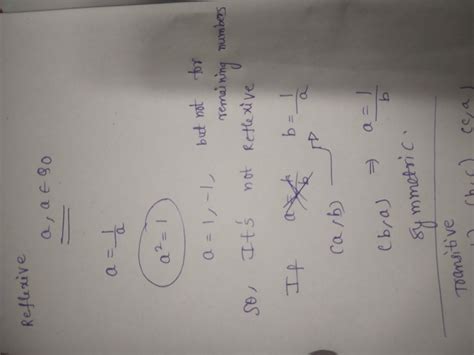 Reflexive
a, a ∈ Q0
a = 1/a
a² = 1
a = 1, -1, but not for
remaining numbers
So, It's not Reflexive
If b = 1/a
(a, b)
(b, a) ⇒ a = 1/b
Symmetric.
Transitive